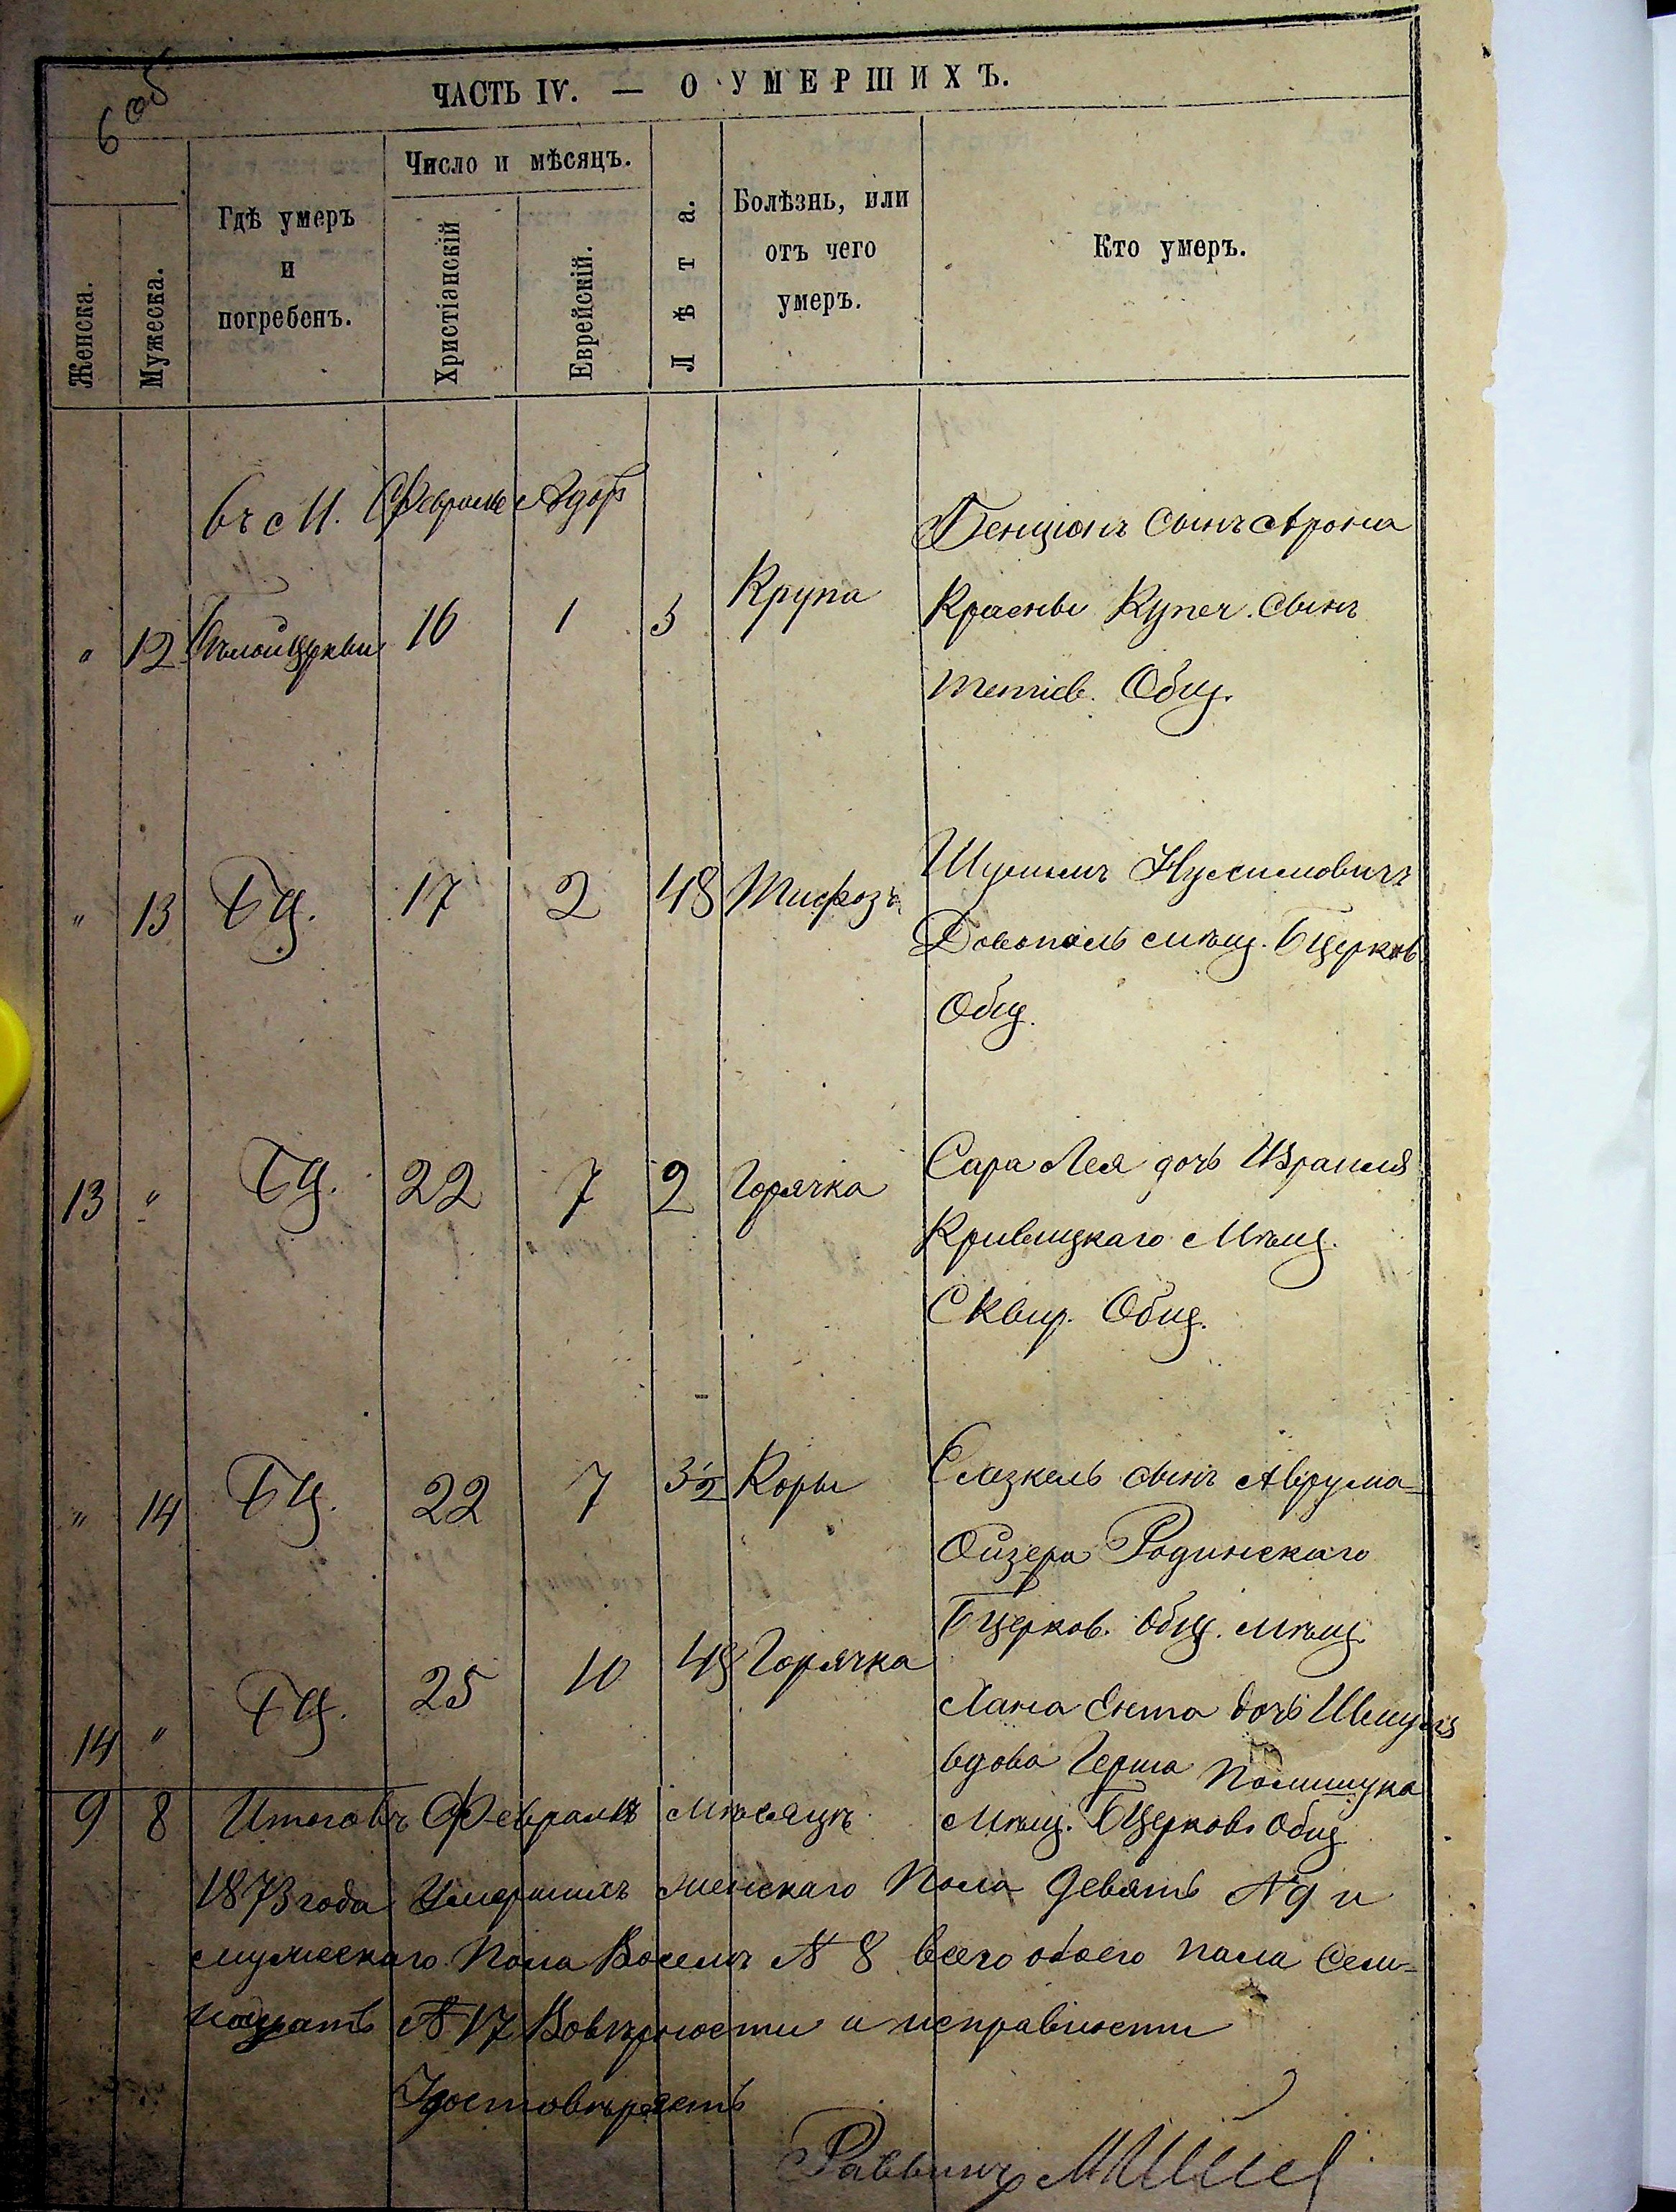 6 об
ЧАСТЬ IV. — О УМЕРШИХЪ.
Женска.
Мужеска.
Гдѣ умеръ
и
погребенъ.
Число и мѣсяцъ.
Христіанскій
Еврейскій.
Лѣта.
Болѣзнь, или
отъ чего
умеръ.
Кто умеръ.
Въ М. Февраль Адаръ
" 12 Бѣлойцркви 16 1 5 Крупа
Бенціонъ сынъ Арона
Красны Купеч. сынъ
Тетіев. Общ.
" 13 БЦ. 17 2 48 Тифозъ
Шулимъ Нусимовичъ
мѣщ. БЦерков
Общ.
13 " БЦ. 22 7 2 Горячка
Сара Лея дочь Израиля
Кривицкаго Мѣщ.
Сквир. Общ.
" 14 БЦ. 22 7 3½ Коры
сынъ Аврума=
Ойзера Радинскаго
БЦерков. Общ. мѣщ.
14 " БЦ. 25 10 48 Горячка
Хана Ента дочь
вдова Герша Полищука
Мѣщ. БЦерков. Общ
9 8 Итого въ Февралѣ мѣсяцѣ
1873 года Умершихъ женскаго Пола девять №9 и
мужескаго Пола Восемъ № 8 всего обоего пола Сем=
надцать № 17 Вовѣрности и исправности
Удостовѣряетъ
Раввинъ